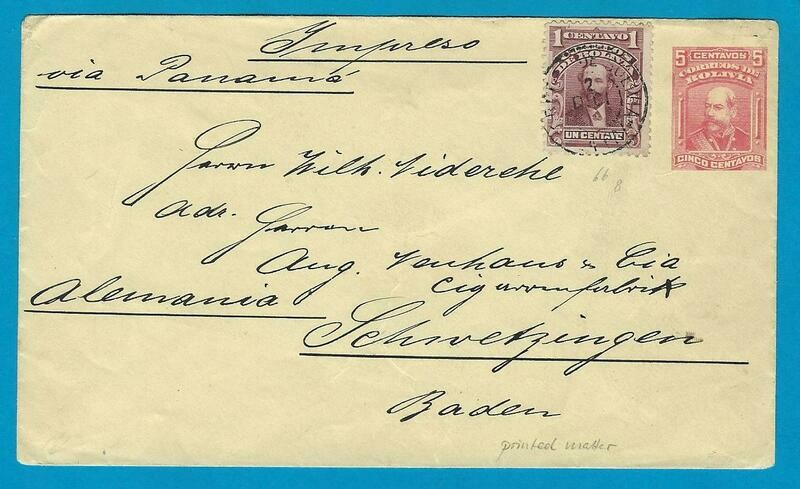 Impreso
via Panamá
1 CENTAVO 1
CORREOS
DE BOLIVIA
UN CENTAVO
5 CENTAVOS 5
CORREOS DE
BOLIVIA
CINCO CENTAVOS
Herrn Wilh. Niderehe
66
8
Adr. Herren
Aug. Neuhaus & Cia
Cigarrenfabrik
Alemania
Schwetzingen
Baden
printed matter